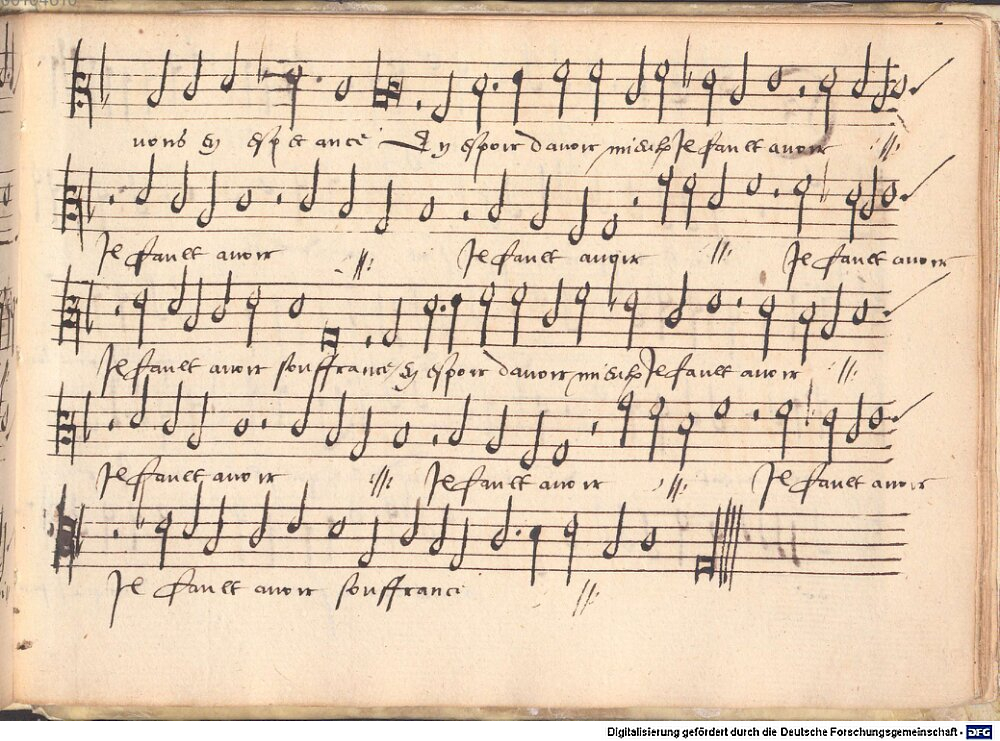 vons en esperance En espoir davoir mieulx Il fault avoir //
Il fault avoir // Il fault avoir // Il fault avoir
Il fault avoir souffrance En espoir davoir mieulx Il fault avoir //
Il fault avoir // Il fault avoir // Il fault avoir
Il fault avoir souffrance //
Digitalisierung gefördert durch die Deutsche Forschungsgemeinschaft - DFG